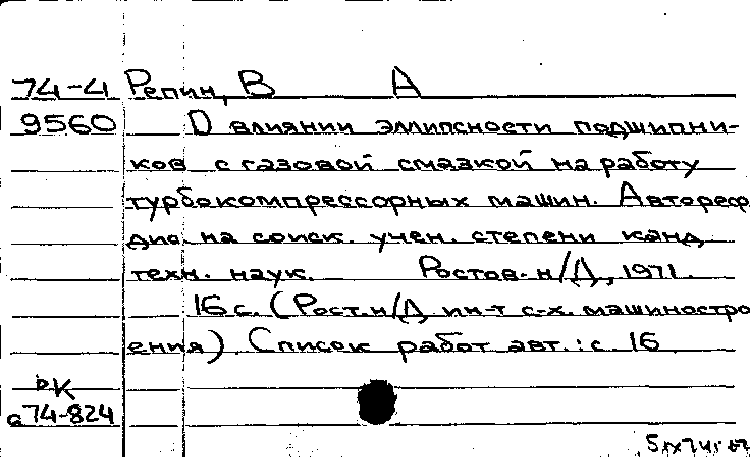 74-4 Репин, В А
9560 О влиянии эллипсности подшипни-
ков с газовой смазкой на работу
турбокомпрессорных машин. Автореф
дис. на соиск. учен. степени канд
техн. наук. Ростов-н/Д, 1971.
16 с. (Рост.н/Д ин-т с-х. машиностро
ения). Список работ авт.: с. 16
ьК
а74-824